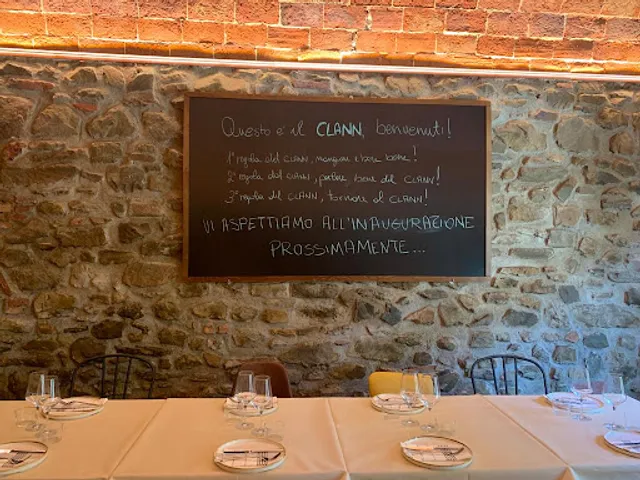 Questo e' il CLANN, benvenuti!
1ª regola del CLANN, mangiare e bere bene!
2ª regola del CLANN, parlare bene del CLANN!
3ª regola del CLANN, tornare al CLANN!
VI ASPETTIAMO ALL'INAUGURAZIONE
PROSSIMAMENTE...